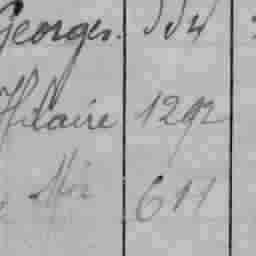 Georges. 554
Hilaire 1292
611